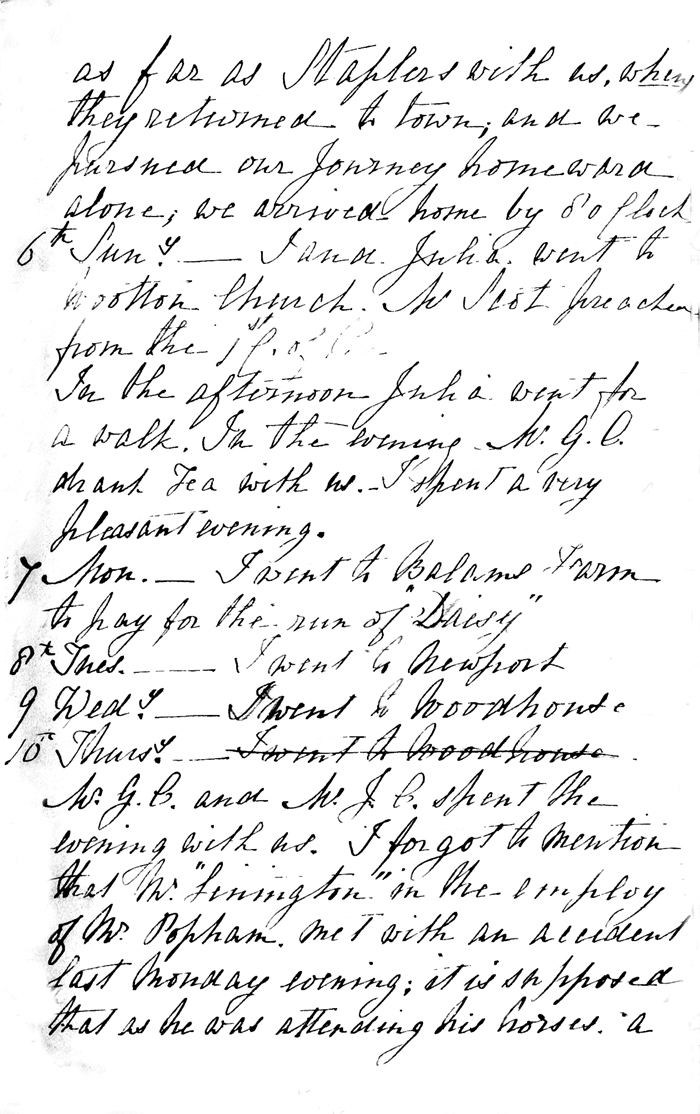 as far as Staplers with us, when
they returned to town; and we
pursued our Journey homeward
alone; we arrived home by 8 o Clock
6th Sun.y — I and Julia went to
Wootton Church. Mr Scot preached
from the 1st
In the afternoon Julia went for
a walk. In the evening Mr. G. C.
drank Tea with us. I spent a very
pleasant evening.
7 Mon. — I went to Balams Farm
to pay for the run of "Daisy"
8th Tues. — I went to Newport
9 Wed.y — I went to Woodhouse
10th Thurs.y — I went to Woodhouse
Mr. G. C. and Mr. J. C. spent the
evening with us. I forgot to mention
that Mr. "Linington" in the employ
of Mr. Popham. met with an accident
last Monday evening; it is supposed
that as he was attending his horses. a